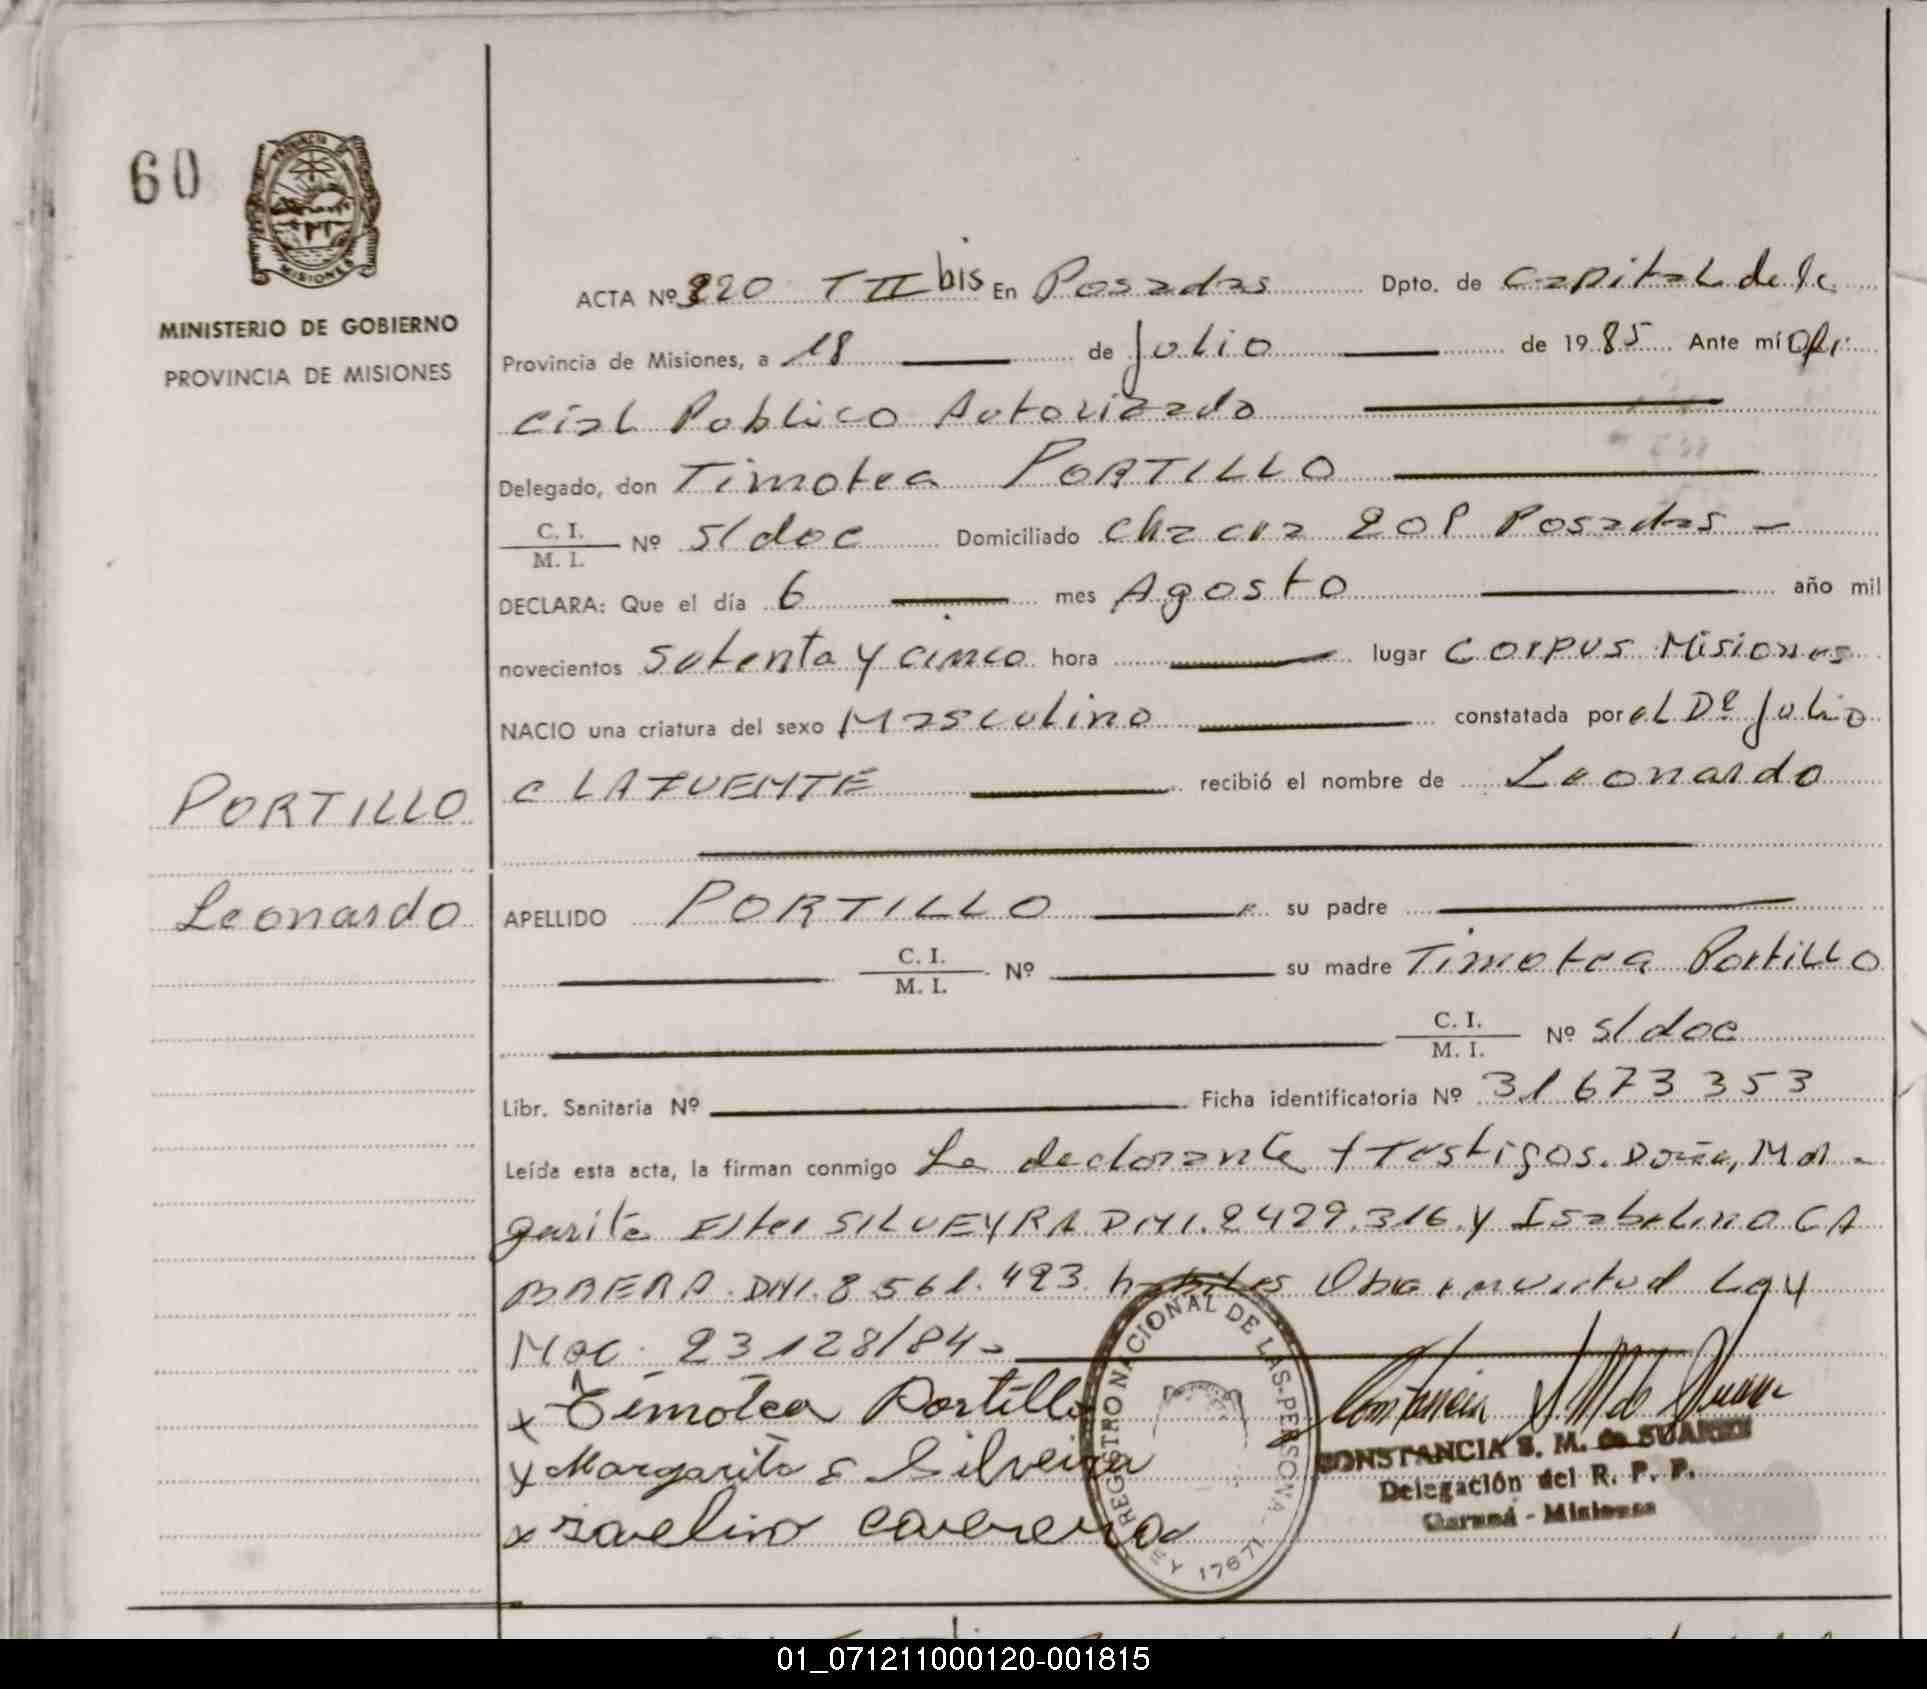 60
MISIONES
MINISTERIO DE GOBIERNO
PROVINCIA DE MISIONES
ACTA Nº 320 T II bis En Posadas Dpto. de Capital de la
Provincia de Misiones, a 18 de Julio de 1985 Ante mí Ofi
cial Publico Autorizado
Delegado, don Timotea PORTILLO
C. I. / M. I. Nº s/doc Domiciliado Chacra 208 Posadas
DECLARA: Que el día 6 mes Agosto año mil
novecientos setenta y cinco hora lugar Corpus Misiones
NACIO una criatura del sexo Masculino constatada por el Dr Julio
C LAFUENTE recibió el nombre de Leonardo
PORTILLO
Leonardo
APELLIDO PORTILLO su padre
C. I. / M. I. Nº su madre Timotea Portillo
C. I. / M. I. Nº s/doc
Libr. Sanitaria Nº Ficha identificatoria Nº 31 673 353
Leída esta acta, la firman conmigo La declarante y testigos. Doña, Mar
garita Ester SILVEYRA DNI. 2429.316 y Isabelino CA
BRERA DNI. 8 561. 493 habiles Obra en virtud Ley
Nac. 23128/84
x Timotea Portillo
x Margarita E Silveira
x
REGISTRO NACIONAL DE LAS PERSONAS
LEY 17671
CONSTANCIA S. M. de SUAREZ
Delegación del R. P. P.
Misiones
01_071211000120-001815